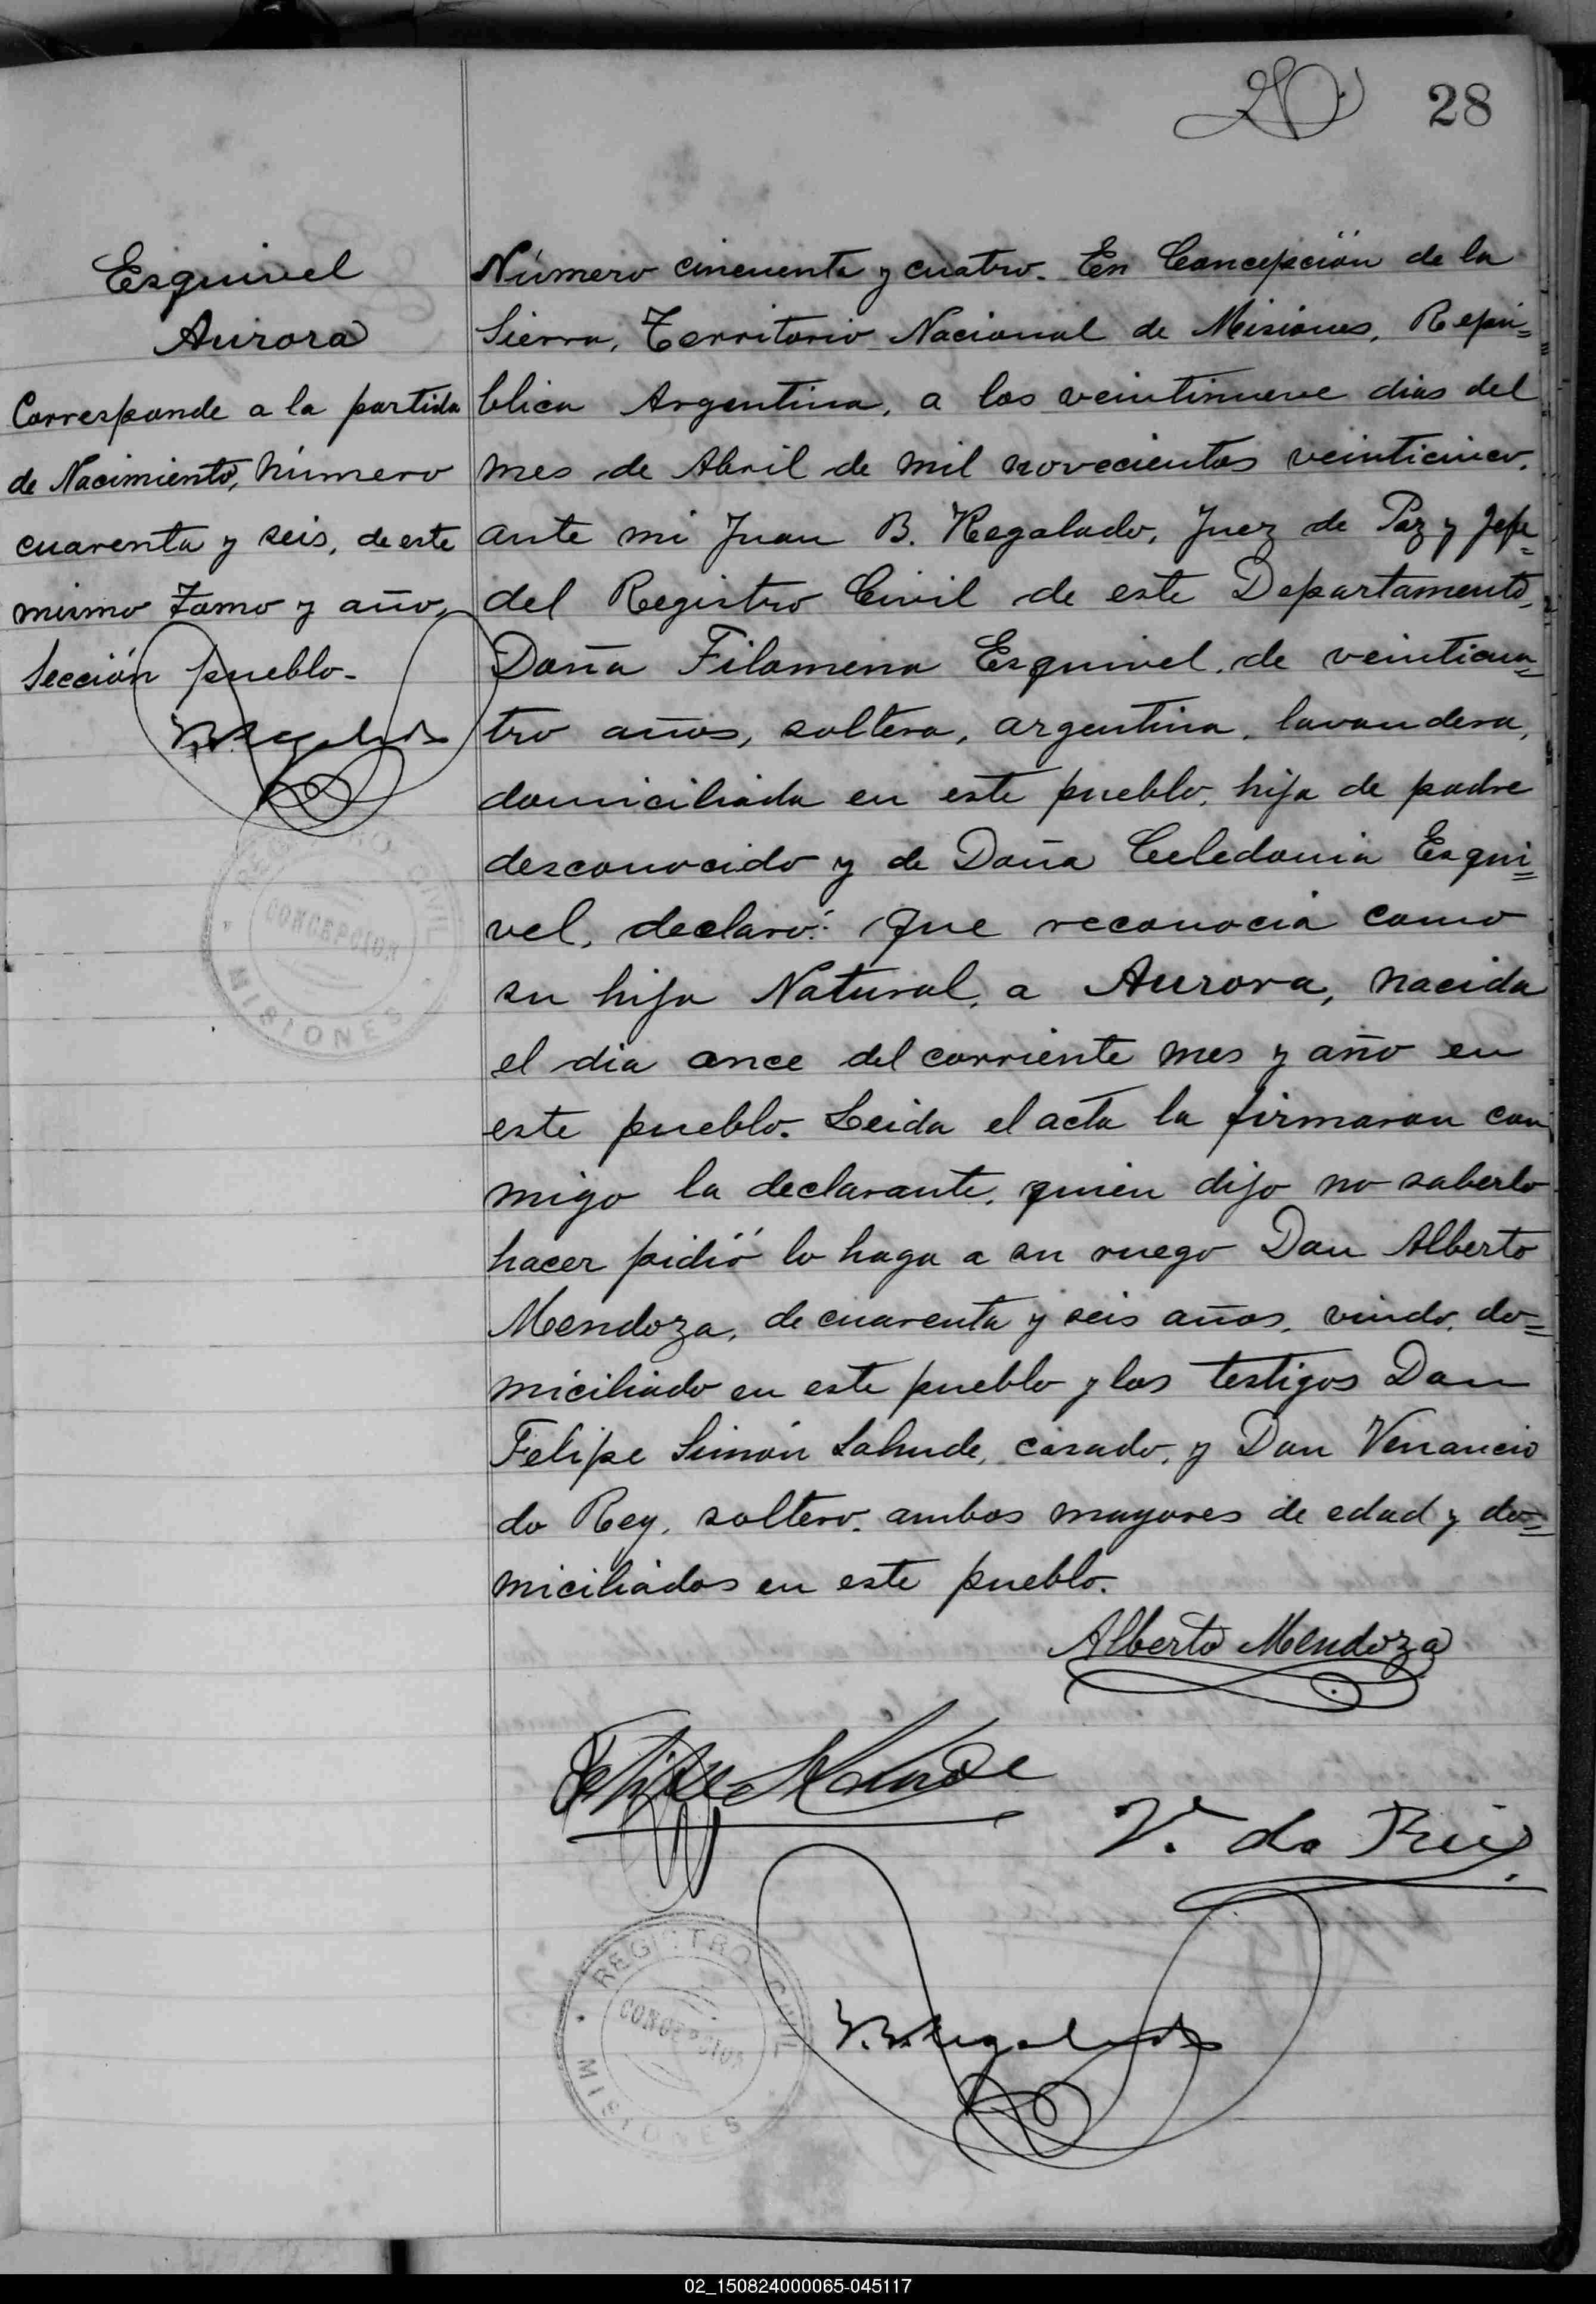 28
Esquivel
Aurora
Corresponde a la partida
de Nacimiento, número
cuarenta y seis, de este
mismo Tomo y año,
Sección pueblo-
REGISTRO CIVIL
CONCEPCION
MISIONES
Número cincuenta y cuatro. En Concepción de la
Sierra, Territorio Nacional de Misiones, Repú=
blica Argentina, a los veintinueve dias del
mes de Abril de mil novecientos veinticinco,
ante mi Juan B. Regalado, Juez de Paz y Jefe
del Registro Civil de este Departamento,
Doña Filomena Esquivel, de veinticua=
tro años, soltera, argentina, lavandera,
domiciliada en este pueblo, hija de padre
desconocido y de Doña Celedonia Esqui=
vel, declaró: Que reconocia como
su hija Natural, a Aurora, nacida
el dia once del corriente mes y año en
este pueblo. Leida el acta la firmaron con
migo la declarante, quien dijo no saberlo
hacer pidió lo haga a su ruego Don Alberto
Mendoza, de cuarenta y seis años, viudo, do=
miciliado en este pueblo y los testigos Don
Felipe Simón Lahude, casado, y Don Venancio
do Rey, soltero, ambos mayores de edad y do=
miciliados en este pueblo.
Alberto Mendoza
Felipe S Lahude
V. do Rei
REGISTRO CIVIL
CONCEPCION
MISIONES
J.B. Regalado
02_150824000065-045117